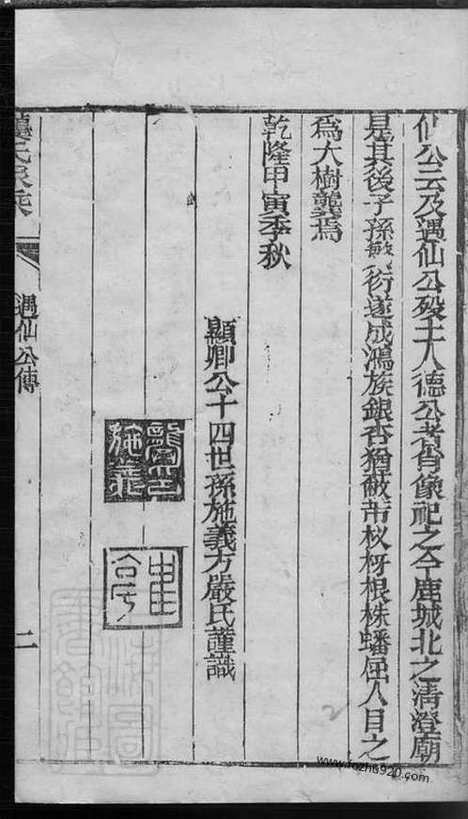 仙公云及遇仙公歿土人德公者肖像祀之今鹿城北之清澄廟
是其後子孫蕃衍遂成鴻族銀杏猶蔽芾杈枒根株蟠屈人目之
爲大樹龔焉
乾隆甲寅季秋
顯卿公十四世孫施義方嚴氏謹識
龔氏家乘
遇仙公傳
二
www.fozhu920.com